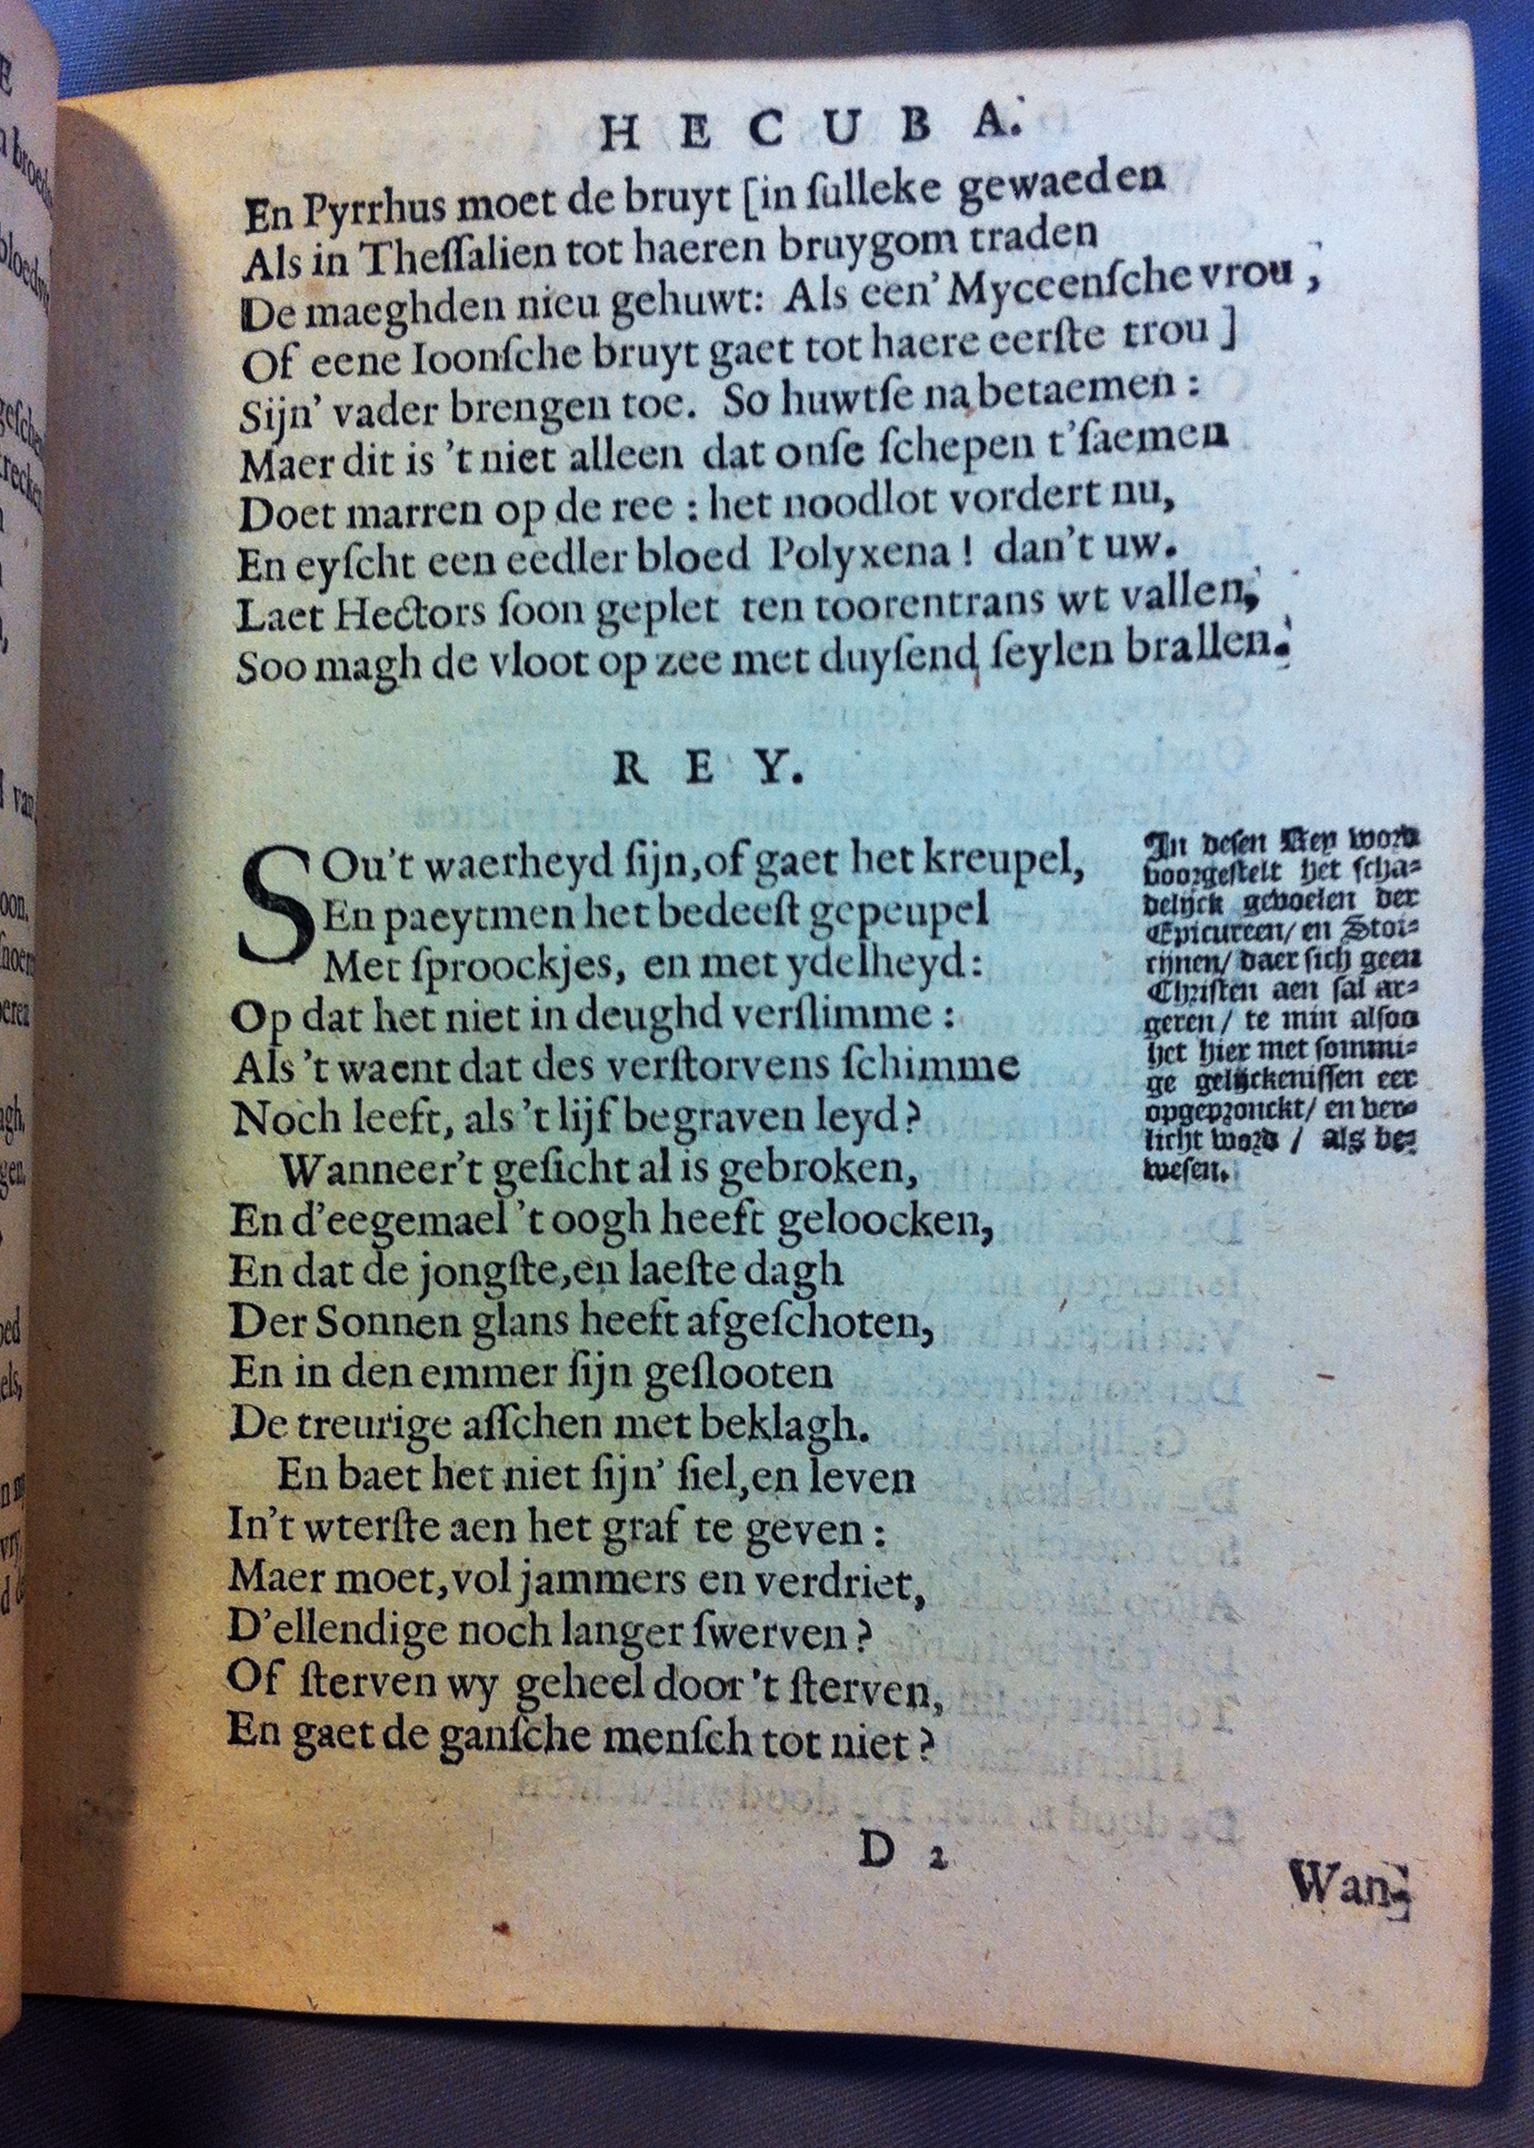 HECUBA.
En Pyrrhus moet de bruyt [in ſulleke gewaeden
Als in Theſſalien tot haeren bruygom traden
De maeghden nieu gehuwt: Als een' Myceenſche vrou,
Of eene Ioonſche bruyt gaet tot haere eerſte trou]
Sijn' vader brengen toe. So huwtſe na betaemen:
Maer dit is 't niet alleen dat onſe ſchepen t'ſaemen
Doet marren op de ree: het noodlot vordert nu,
En eyſcht een eedler bloed Polyxena! dan't uw.
Laet Hectors ſoon geplet ten toorentrans wt vallen,
Soo magh de vloot op zee met duyſend ſeylen brallen.
REY.
SOu't waerheyd ſijn, of gaet het kreupel,
En paeytmen het bedeeſt gepeupel
Met ſproockjes, en met ydelheyd:
Op dat het niet in deughd verſlimme:
Als 't waent dat des verſtorvens ſchimme
Noch leeft, als 't lijf begraven leyd?
Wanneer't geſicht al is gebroken,
En d'eegemael 't oogh heeft geloocken,
En dat de jongſte, en laeſte dagh
Der Sonnen glans heeft afgeſchoten,
En in den emmer ſijn geſlooten
De treurige aſſchen met beklagh.
En baet het niet ſijn' ſiel, en leven
In't wterſte aen het graf te geven:
Maer moet, vol jammers en verdriet,
D'ellendige noch langer ſwerven?
Of ſterven wy geheel door 't ſterven,
En gaet de ganſche menſch tot niet?
In deſen Rey word
voorgeſtelt het ſcha-
delijck gevoelen der
Epicureen/ en Stoi-
cijnen/ daer ſich geen
Chriſten aen ſal ar-
geren/ te min alſoo
het hier met ſommi-
ge gelijckeniſſen eer
opgepronckt/ en ver-
licht word/ als be-
weſen.
D 2
Wan-